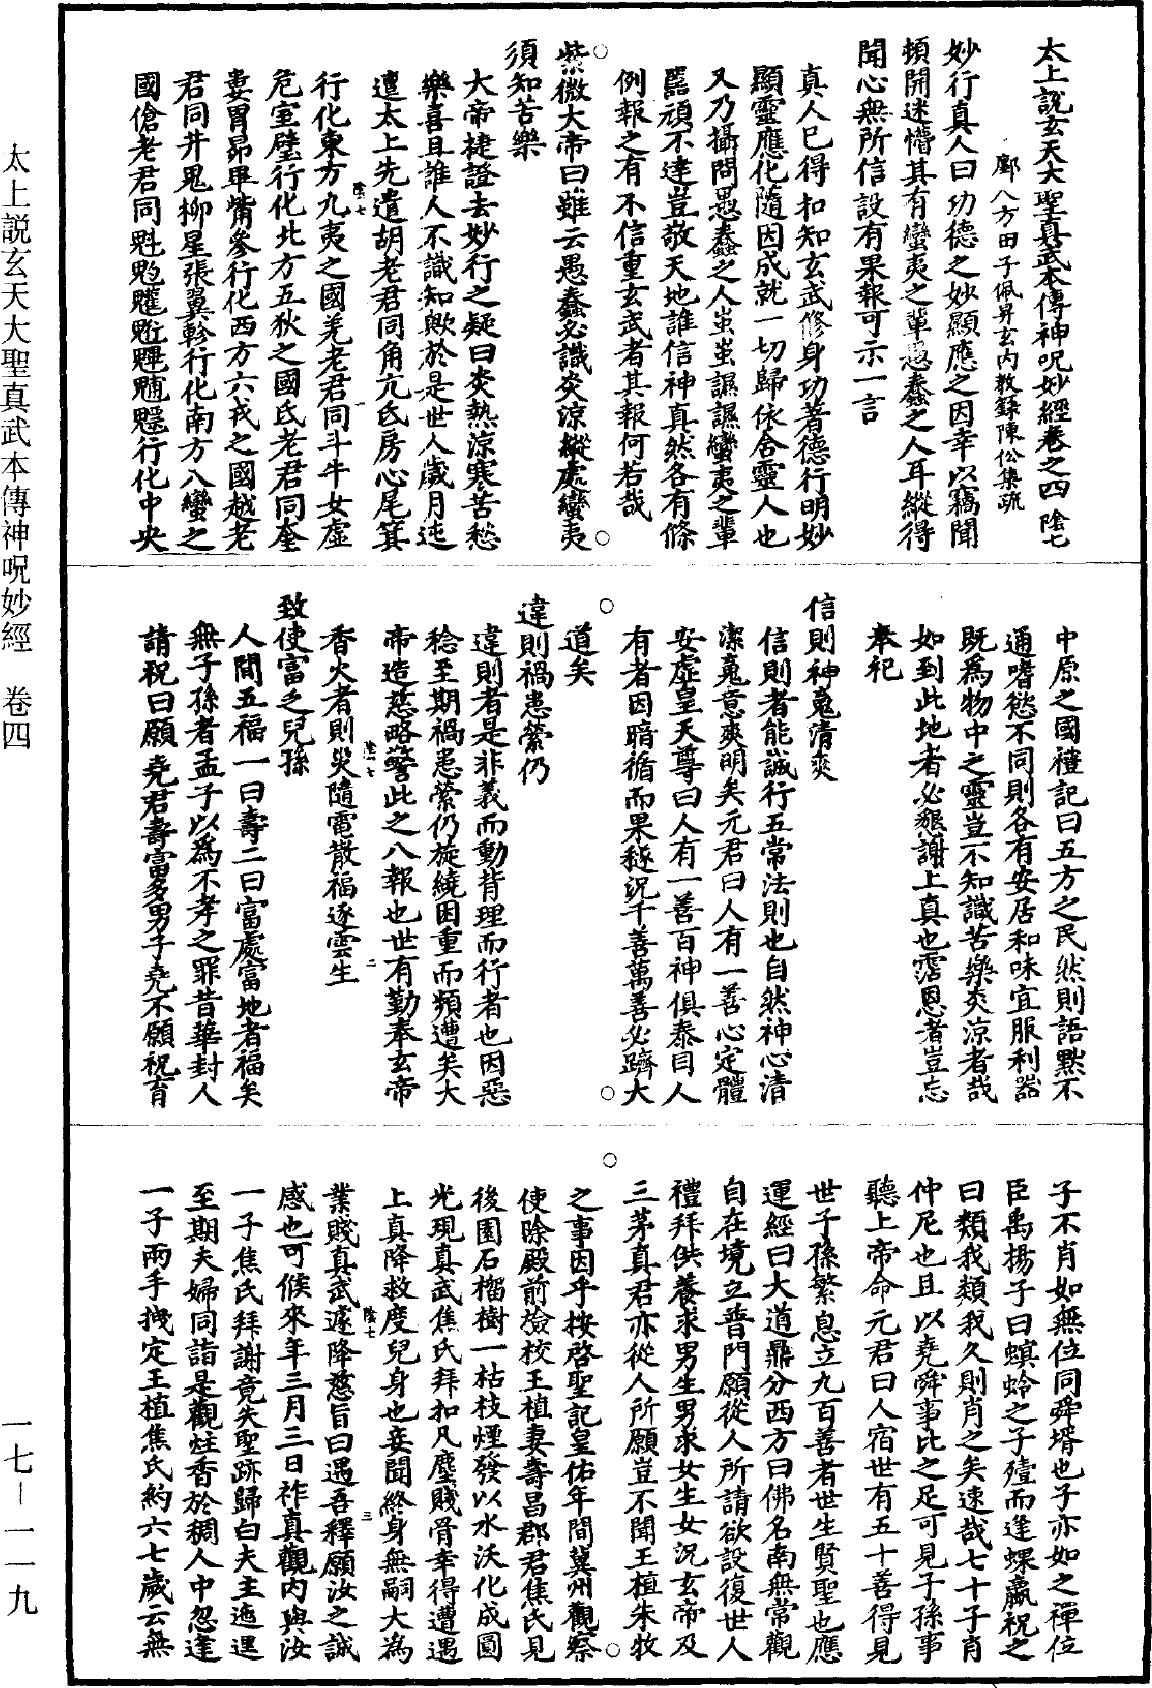 太上說玄天大聖真武本傳神呪妙經卷之四 陰七
鄽八方田子佩昇玄內教錄陳伀集疏
妙行真人曰功德之妙顯應之因幸以竊聞
頓開迷懵其有蠻夷之輩愚蠢之人耳縱得
聞心無所信設有果報可示一言
真人已得扣知玄武修身功著德行明妙
顯靈應化隨因成就一切歸依含靈人也
又乃攝問愚蠢之人蚩蚩譅譅蠻夷之輩
嚚頑不達豈敬天地誰信神真然各有條
例報之有不信重玄武者其報何若哉
紫微大帝曰雖云愚蠢必識炎涼縱處蠻夷
須知苦樂
大帝捷證去妙行之疑曰炎熱涼寒苦愁
樂喜且誰人不識知歟於是世人歲月迍
遭太上先遣胡老君同角亢氐房心尾箕
行化東方九夷之國羌老君同斗牛女虛
危室壁行化北方五狄之國氐老君同奎
婁胃昴畢觜參行化西方六戎之國越老
君同井鬼柳星張翼軫行化南方八蠻之
國傖老君同魁魀䰢魓行化中央
中原之國禮記曰五方之民然則語默不
通嗜慾不同則各有安居和味宜服利器
既為物中之靈豈不知識苦樂炎涼者哉
如到此地者必懇謝上真也霑恩者豈忘
奉祀
信則神䰟清爽
信則者能誠行五常法則也自然神心清
潔䰟意爽明矣元君曰人有一善心定體
安虛皇天尊曰人有一善百神俱泰目人
有者因暗循而果穟況千善萬善必躋大
道矣
違則禍患縈仍
違則者是非義而動背理而行者也因惡
稔至期禍患縈仍旋繞困重而頻遭矣大
帝造慈略警此之八報也世有勤奉玄帝
香火者則災隨電散福逐雲生
致使富之兒孫
人間五福一曰壽二曰富處富地者福矣
無子孫者孟子以為不孝之罪昔華封人
請祝曰願堯君壽富多男子堯不願祝育
子不肖如無位同舜壻也子亦如之禪位
臣禹揚子曰螟蛉之子殪而逢蜾蠃祝之
曰類我類我久則肖之矣速哉七十子肖
仲尼也且以堯舜事比之足可見子孫事
聽上帝命元君曰人宿世有五十善得見
世子孫繁息立九百善者世生賢聖也應
運經曰大道鼎分西方曰佛名南無常觀
自在境立普門願從人所請欲設復世人
禮拜供養求男生男求女生女況玄帝及
三茅真君亦從人所願豈不聞王植朱牧
之事因乎按啓聖記皇佑年間冀州觀察
使除殿前檢校王植妻壽昌郡君焦氏見
後園石榴樹一枯枝煙發以水沃化成圓
光現真武焦氏拜扣凡塵賤骨幸得遭遇
上真降救度兒身也妾聞終身無嗣大為
業賤真武遽降慈旨曰遇吾釋願汝之誠
感也可候來年三月三日祚真觀內與汝
一子焦氏拜謝竟失聖跡歸白夫主迤邐
至期夫婦同詣是觀炷香於稠人中忽逢
一子兩手拽定王植焦氏約六七歲云無
太上說玄天大聖真武本傳神呪妙經 卷四
一七－一一九